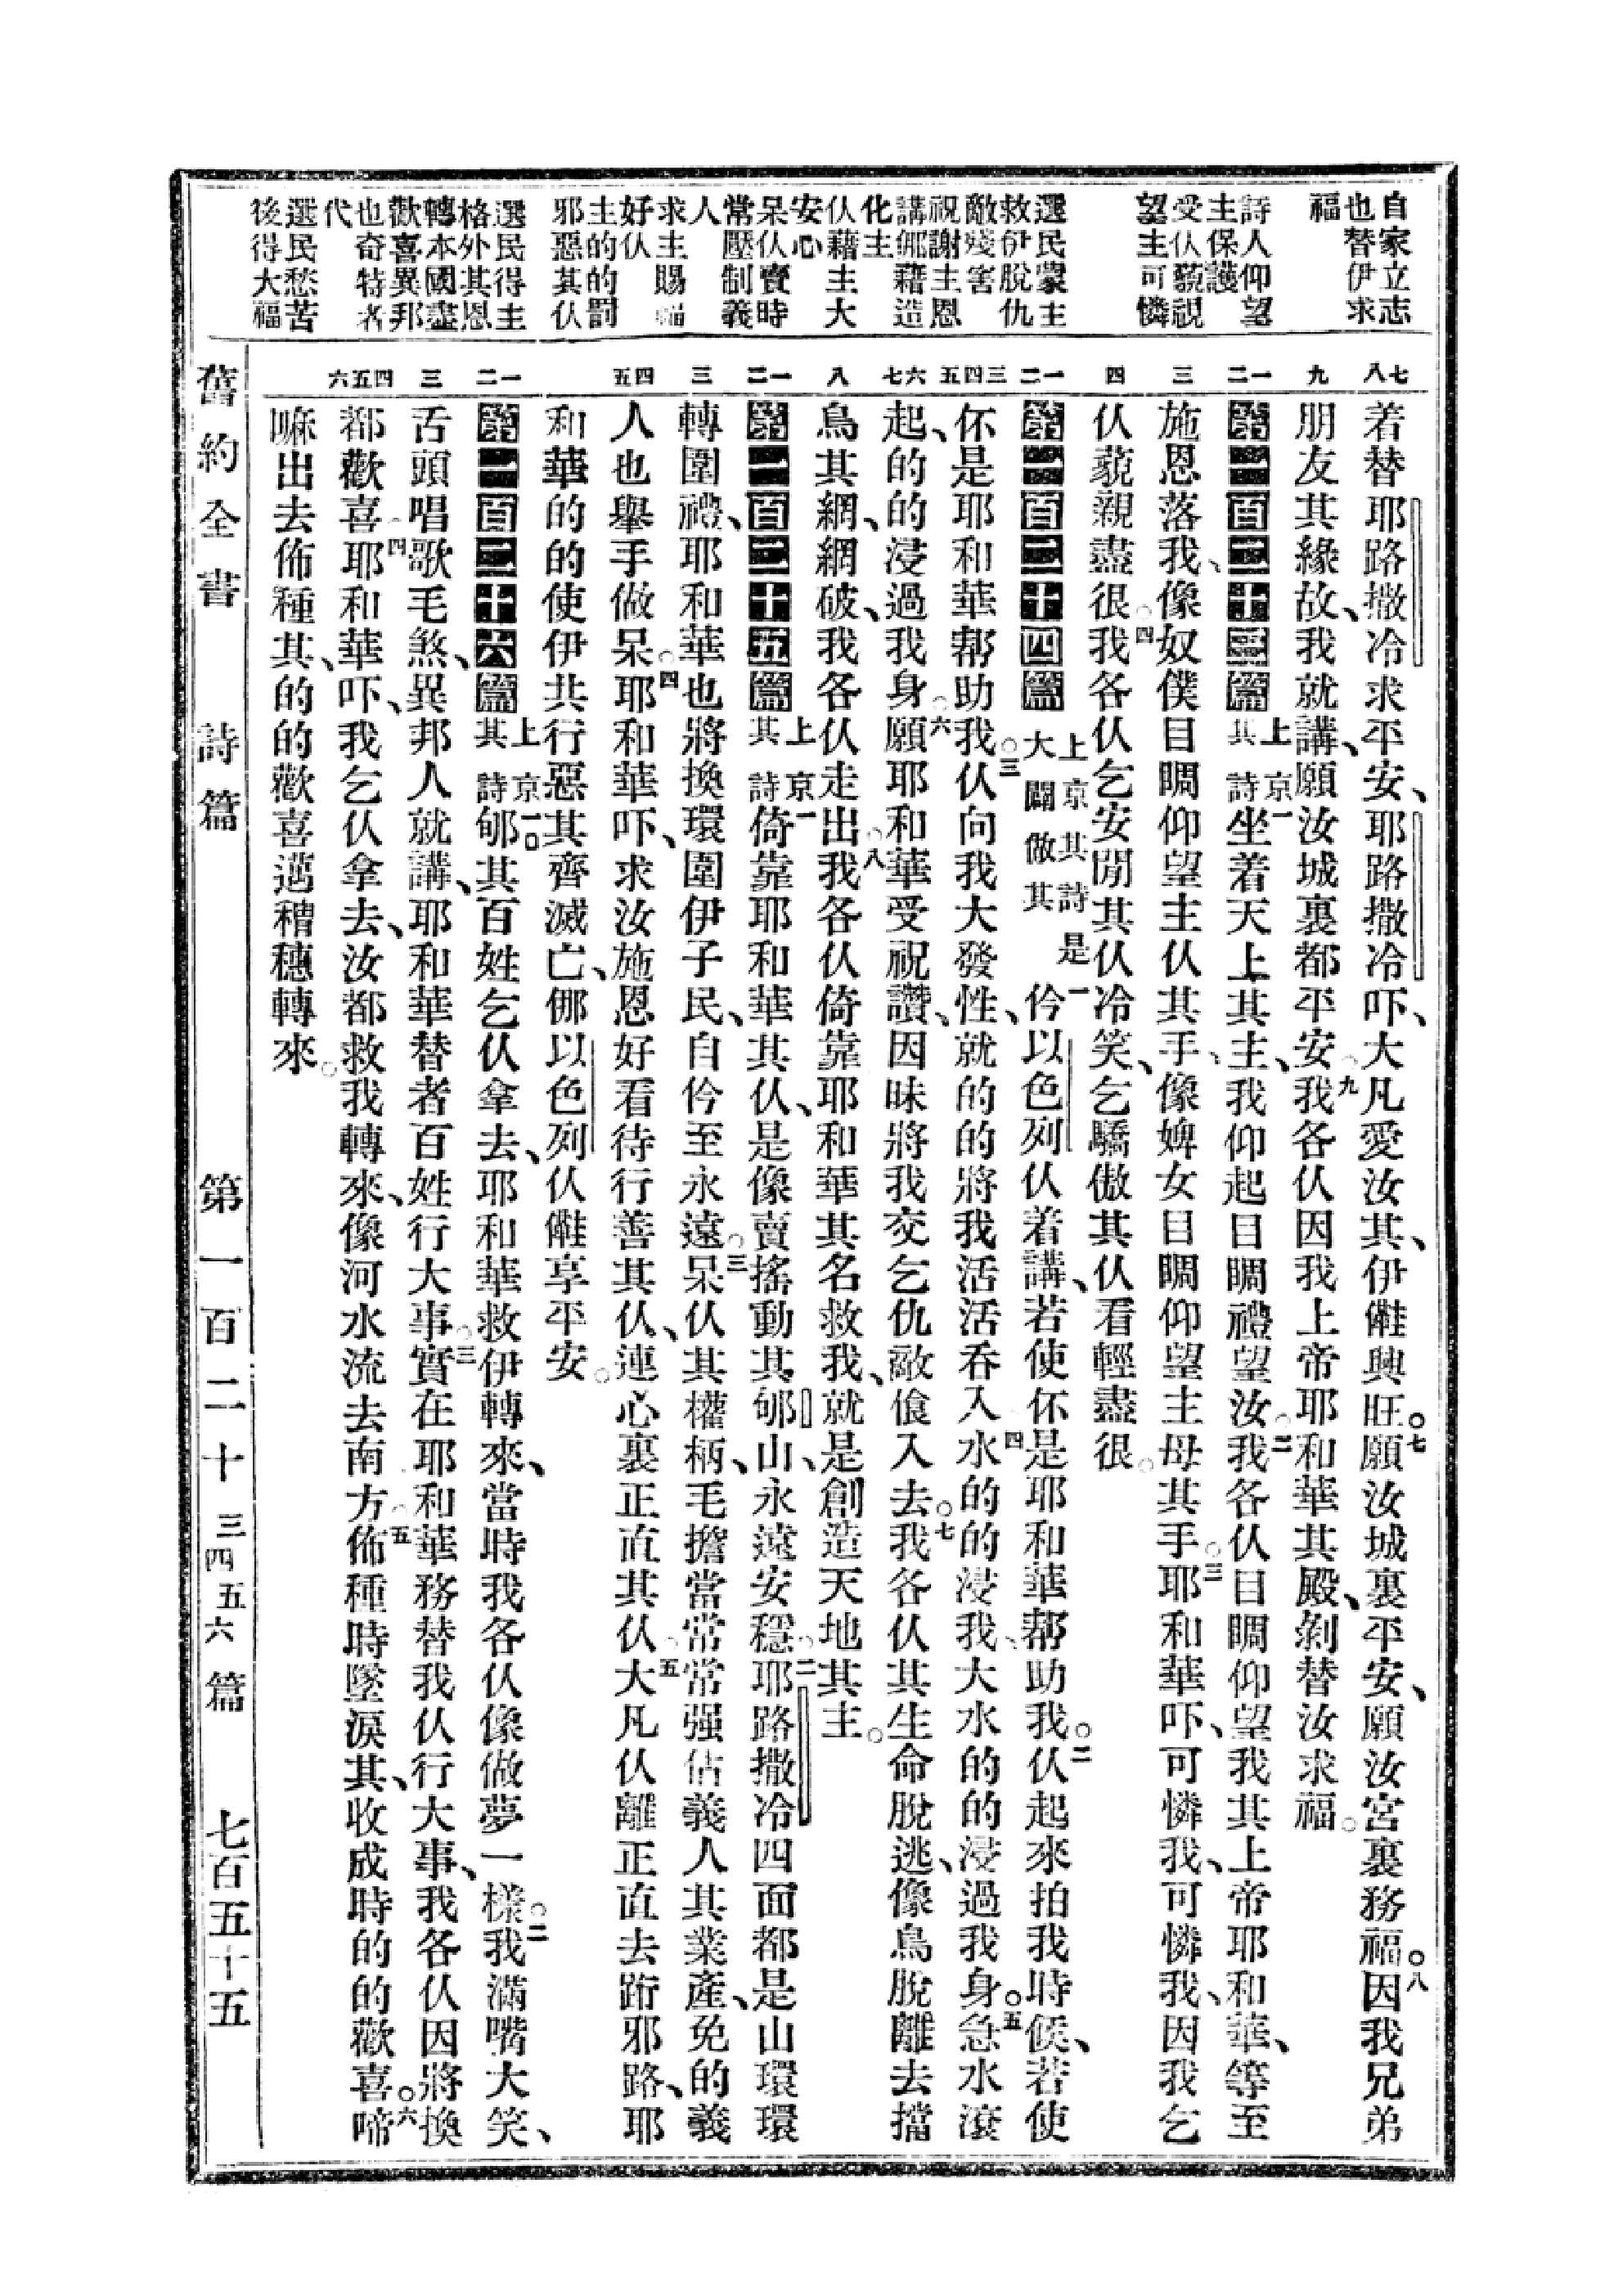 自家立志
也替伊求
福
詩人仰望
主保護
受仫藐視
望主可憐
選民蒙主
救伊脫仇
敵殘害
祝謝主恩
講郍藉造
化主
仫藉主大
安心
呆仫賣時
常壓制義
人
求主賜福
好仫
主的的罰
邪惡其仫
選民得主
格外其恩
轉本國盡
歡喜異邦
也奇特者
代
選民愁苦
後得大福
七八
着替耶路撒冷求平安、耶路撒冷吓、大凡愛汝其、伊儺興旺。七願汝城裏平安、願汝宮裏務福。八因我兄弟
九
朋友其緣故、我就講、願汝城裏都平安。九我各仫因我上帝耶和華其殿、剝替汝求福。
一二
第一百二十三篇上京其詩一坐着天上其主、我仰起目睭禮望汝。二我各仫目睭仰望我其上帝耶和華、等至
三
施恩落我、像奴僕目睭仰望主仫其手、像婢女目睭仰望主母其手。三耶和華吓、可憐我、可憐我、因我乞
四
仫藐親盡很。四我各仫乞安閒其仫冷笑、乞驕傲其仫看輕盡很。
一二
第一百二十四篇上京其詩是大闢做其一伶以色列仫着講、若使伓是耶和華幫助我。二仫起來拍我時候、若使
三四五
伓是耶和華幫助我。三仫向我大發性、就的的將我活活吞入。四水的的浸我、大水的的浸過我身。五急水滾
六七
起、的的浸過我身。六願耶和華受祝讚、因昧將我交乞仇敵飺入去。七我各仫其生命脫逃、像鳥脫離去擋
八
鳥其網、網破、我各仫走出。八我各仫倚靠耶和華其名救我、就是創造天地其主。
一二
第一百二十五篇上京其詩一倚靠耶和華其仫、是像賣搖動其郇山、永遠安穩。二耶路撒冷四面都是山環環
三
轉圍禮、耶和華也將換環圍伊子民、自伶至永遠。三呆仫其權柄、毛擔當常常强佔義人其業產、免的義
四五
人也舉手做呆。四耶和華吓、求汝施恩好看待行善其仫、連心裏正直其仫。五大凡仫離正直去跨邪路、耶
和華的的使伊共行惡其齊滅亡、郍以色列仫儺享平安。
一二
第一百二十六篇上京其詩一郇其百姓乞仫拿去、耶和華救伊轉來、當時我各仫像做夢一樣。二我滿嘴大笑、
三
舌頭唱歌毛煞、異邦人就講、耶和華替者百姓行大事。三實在耶和華務替我仫行大事、我各仫因將換
四五六
都歡喜。四耶和華吓、我乞仫拿去、汝都救我轉來、像河水流去南方。五佈種時墜淚其、收成時的的歡喜。六啼
嘛出去佈種其、的的歡喜邁䅵穗轉來。
舊約全書　詩篇　第一百二十三四五六篇　七百五十五